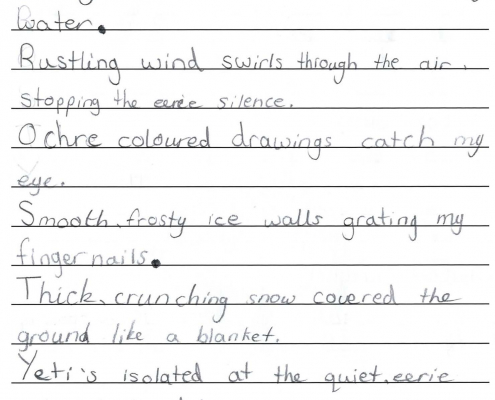 water.
Rustling wind swirls through the air,
stopping the eerie silence.
Ochre coloured drawings catch my
eye.
Smooth, frosty ice walls grating my
finger nails.
Thick, crunching snow covered the
ground like a blanket.
Yeti's isolated at the quiet, eerie